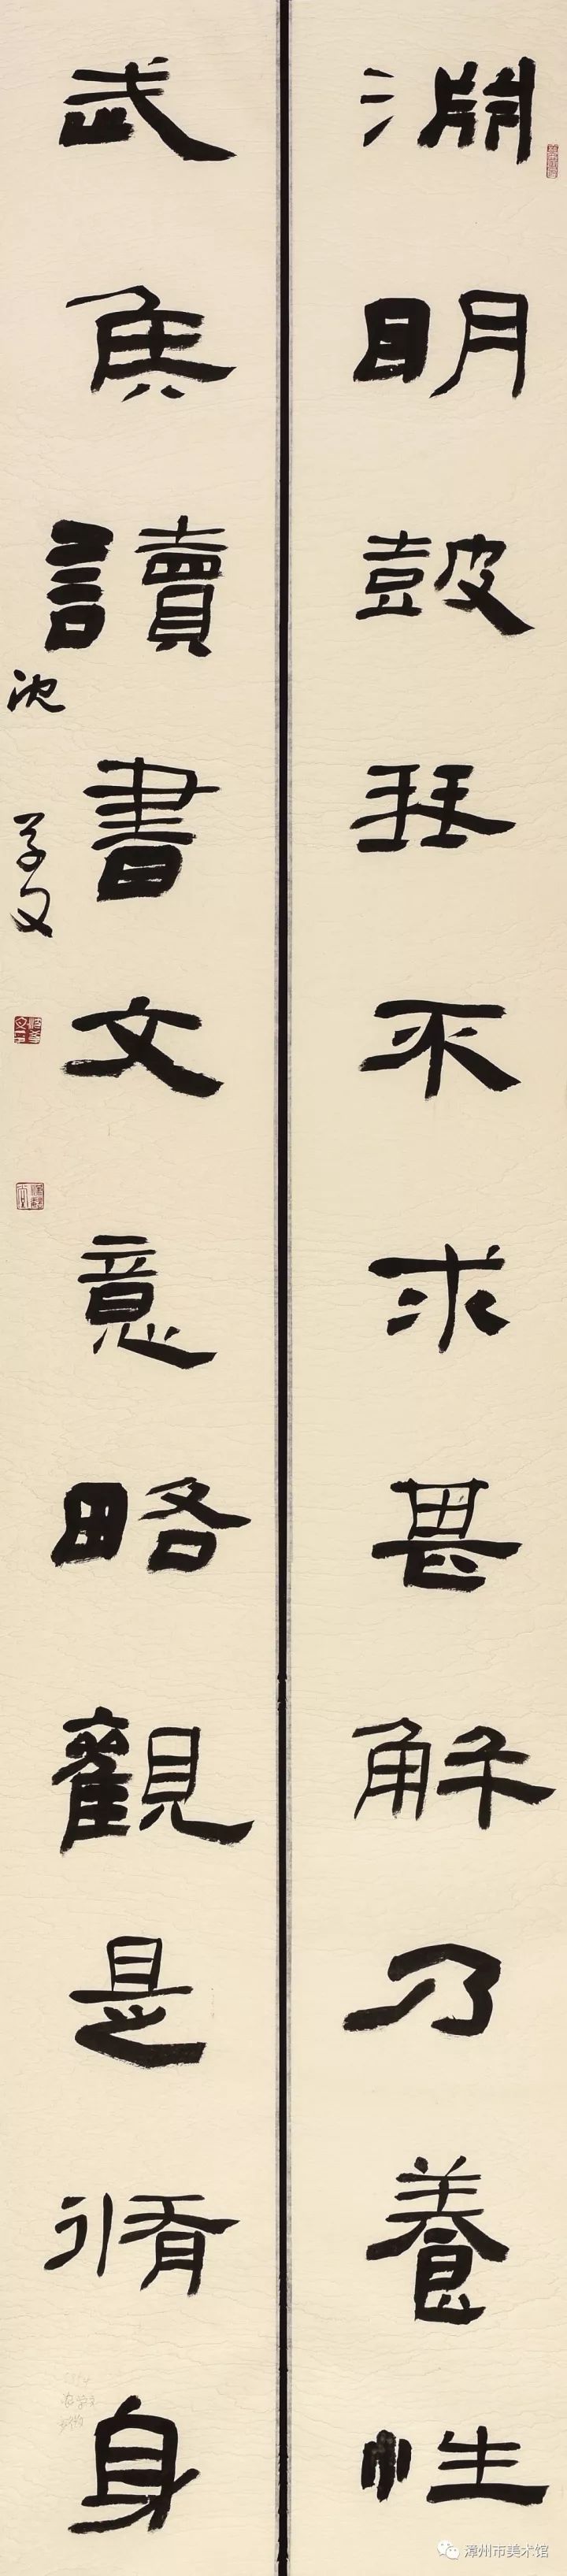 淵明鼓琴不求甚解乃養性
武侯讀書文意略觀是脩身
沈学文
漳州市美术馆